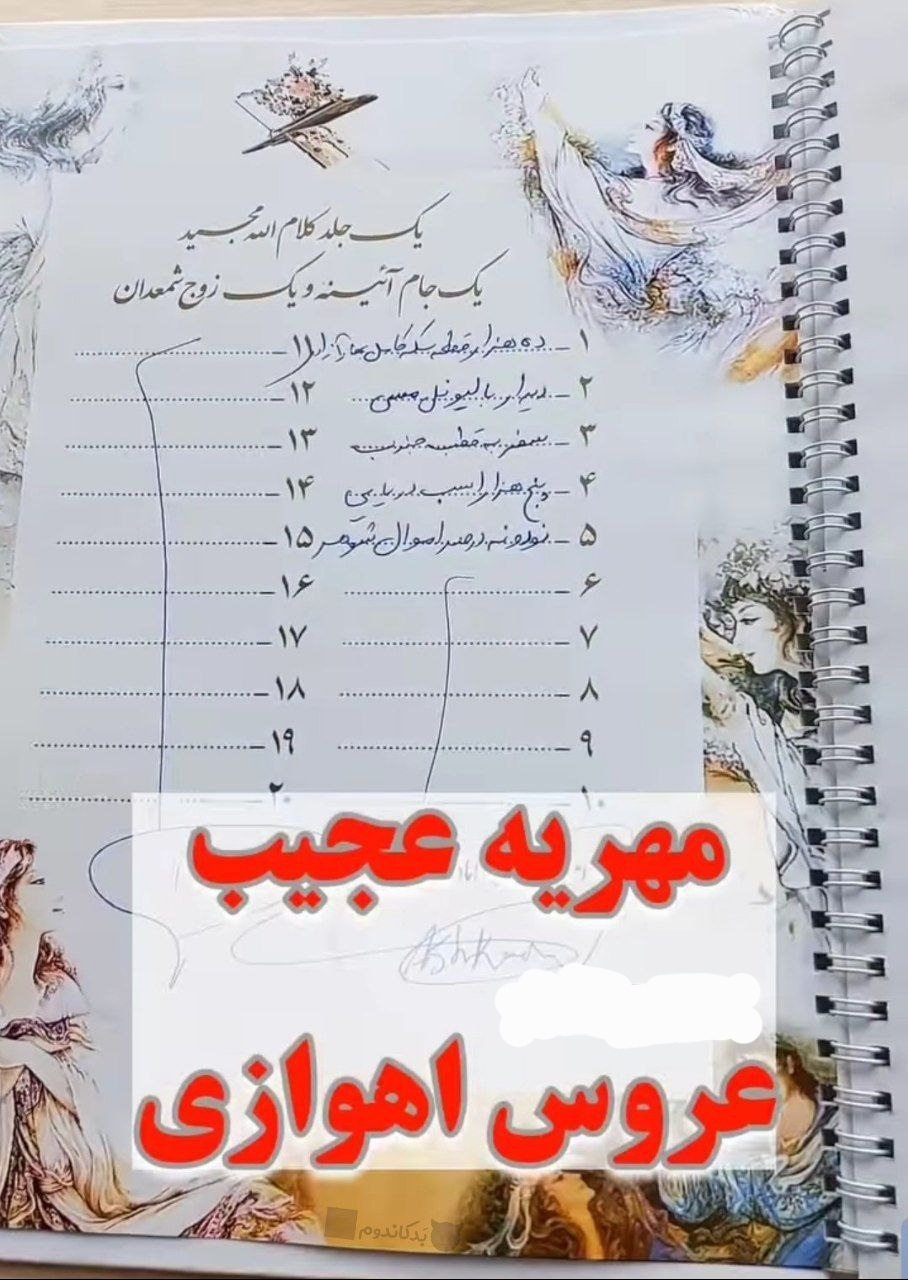 یک جلد کلام الله مجید
یک جام آئینه و یک زوج شمعدان
۱ـ ده هزار قطعه سکه کامل بهار آزادی
۲ـ دیدار با لیونل مسی
۳ـ سفر به قطب جنوب
۴ـ پنج هزار اسب دریایی
۵ـ نود و نه درصد اموال شوهر
۶ـ
۷ـ
۸ـ
۹ـ
۱۰
۱۱ـ
۱۲ـ
۱۳ـ
۱۴ـ
۱۵ـ
۱۶ـ
۱۷ـ
۱۸ـ
۱۹ـ
۲۰
مهریه عجیب
عروس اهوازی
بدکاندوم